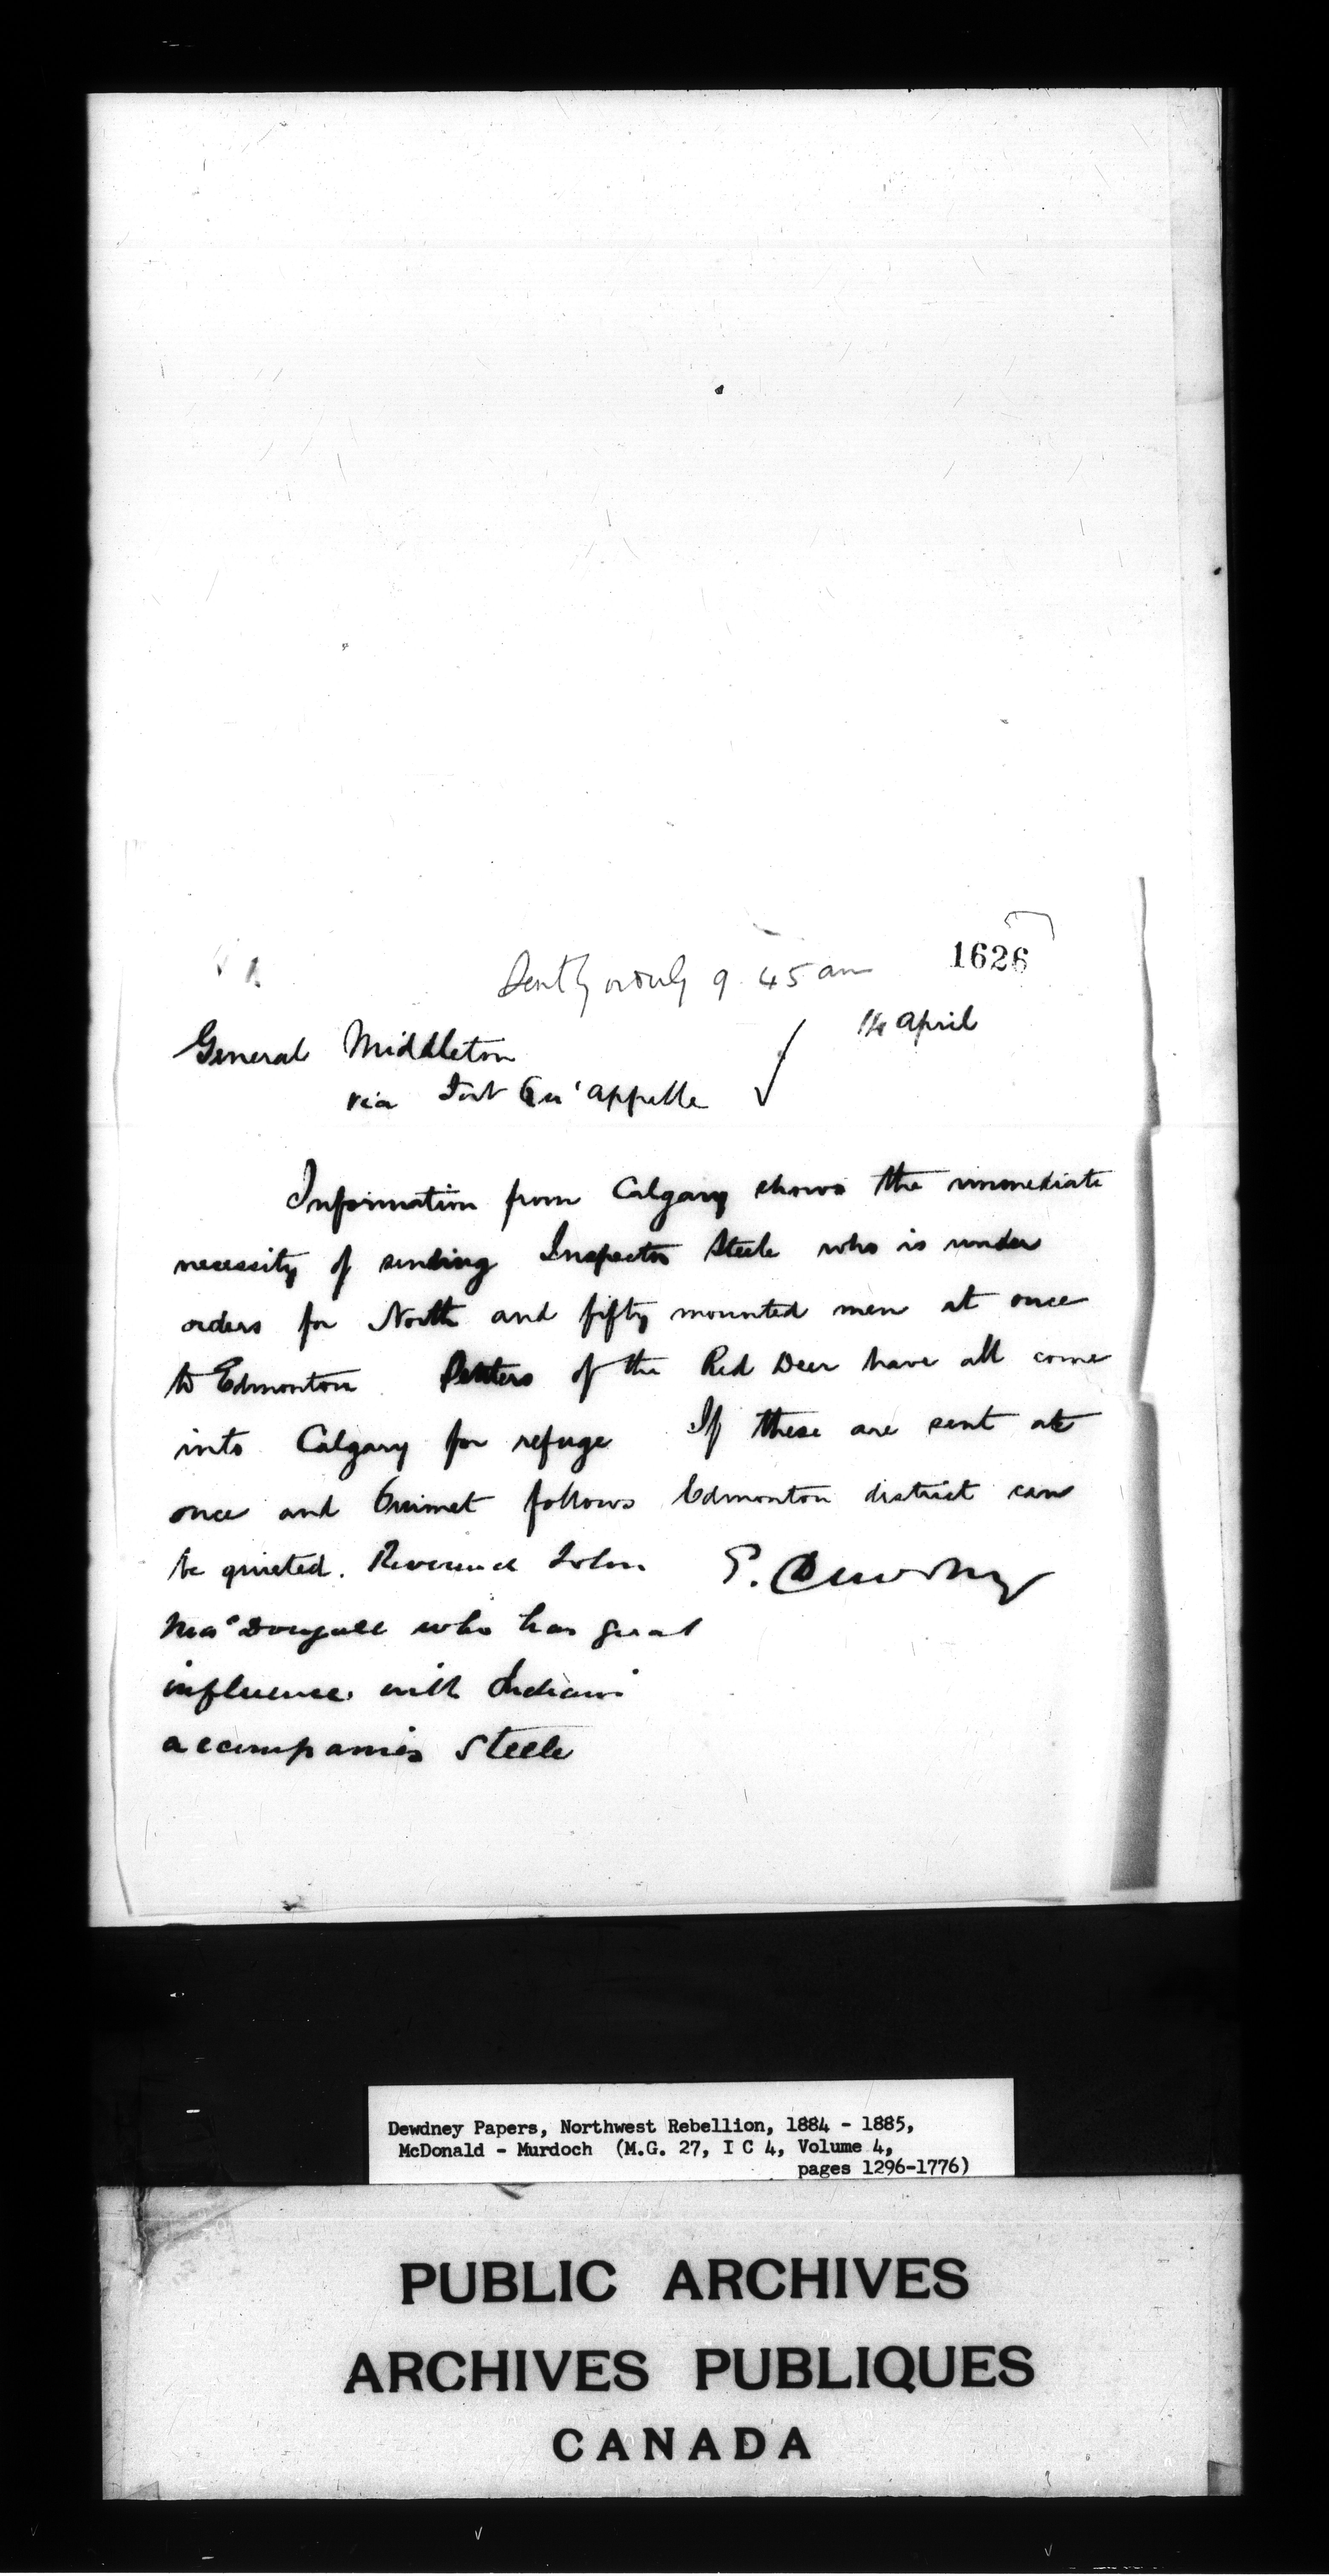 1626
Sent 9 45 am
14 April
General Middleton
via Fort Qu'appelle
Information from Calgary shows the immediate
necessity of sending Inspector Steele who is under
orders for North and fifty mounted men at once
to Edmonton of the Red Deer have all come
into Calgary for refuge If these are sent at
once and Ouimet follows Edmonton district can
be quieted. Reverend John E. Dewdney
MacDougall who has great
influence with Indians
accompanies Steele
Dewdney Papers, Northwest Rebellion, 1884 - 1885,
McDonald - Murdoch (M.G. 27, I C 4, Volume 4,
pages 1296-1776)
PUBLIC ARCHIVES
ARCHIVES PUBLIQUES
CANADA